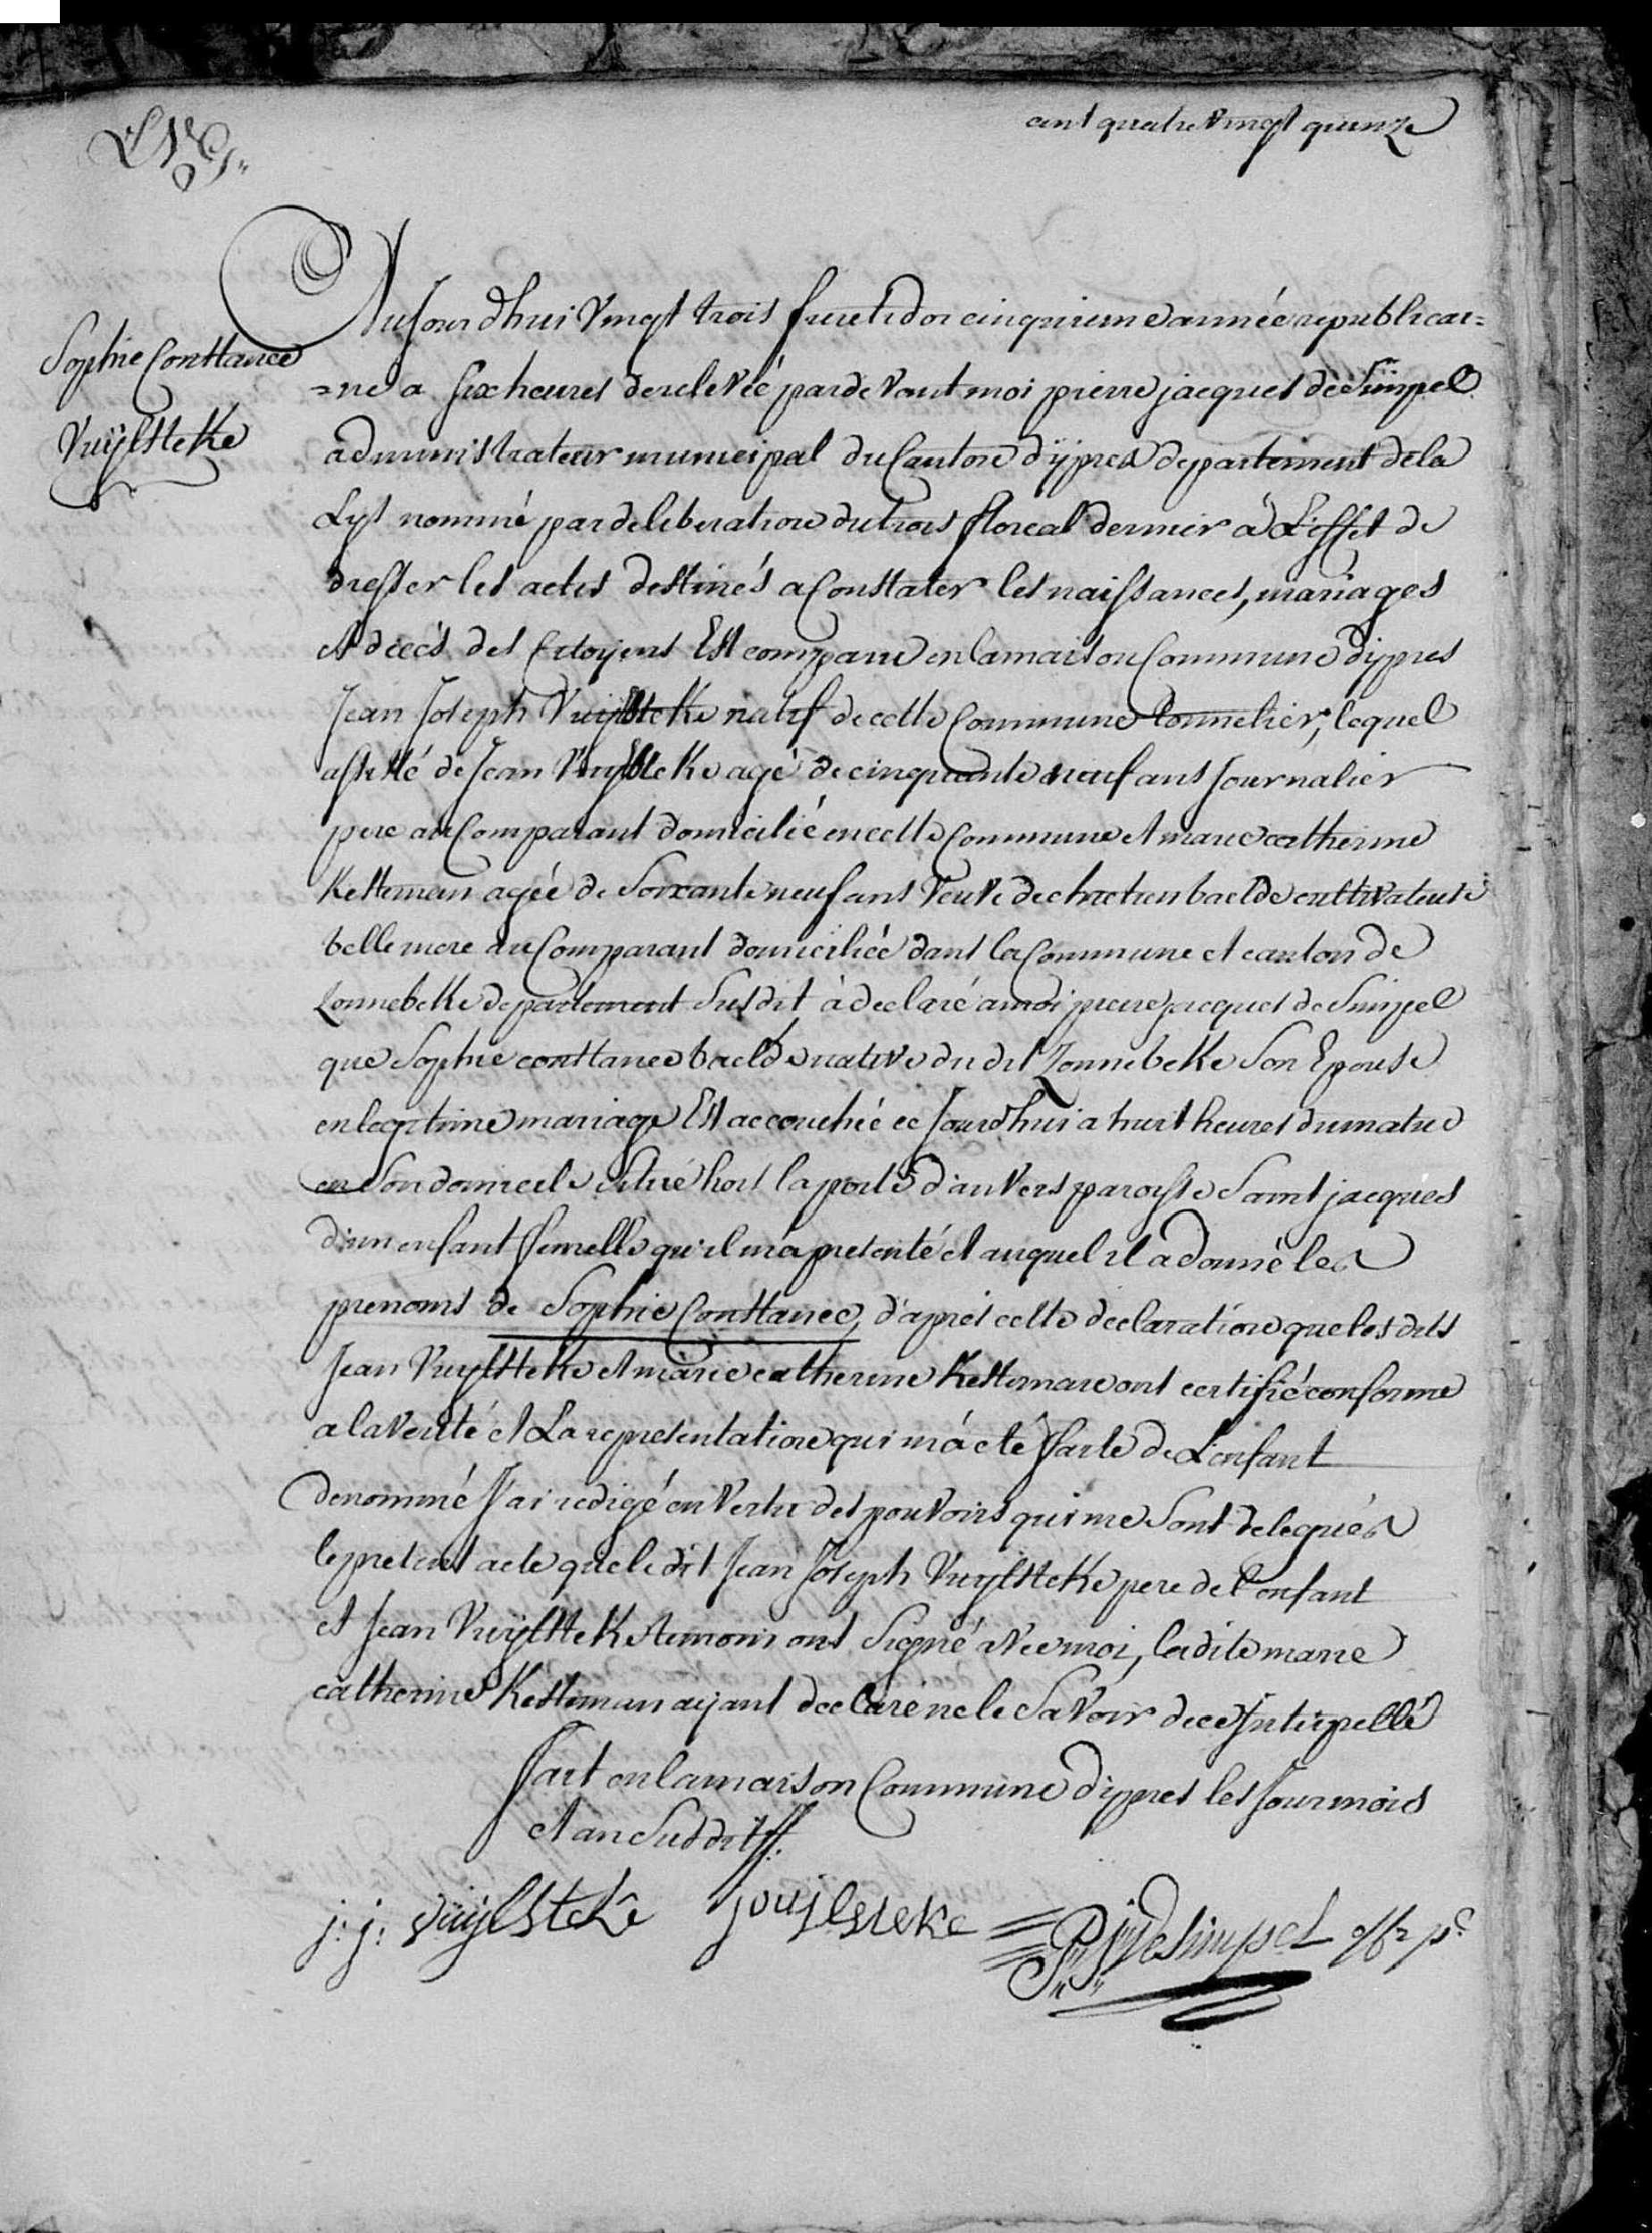 cent quatre Vingt quinze
Sophie Constance
Vuÿlsteke
Aujourdhui Vingt trois fructidor cinquieme année republicai=
=ne a six heures de relevée pardevant moi pierre jacques de Simpel
administrateur municipal du Canton d'ÿpres departement de la
Lys nommé par deliberation du trois floreal dernier à L'effet de
dresser les actes destinés a Constater les naissances, mariages
et decès des Citoyens Est comparu en la maison Commune d'ypres
Jean Joseph Vuylsteke natif de cette Commune tonnelier, lequel
assisté de Jean Vuylsteke agé de cinquante neuf ans Journalier
pere au Comparant domicilié en cette Commune et marie catherine
Kesteman agée de Soixante neuf ans Veuve de chretien baelde cultivateuse
belle mere au Comparant domiciliée dans la Commune et canton de
Zonnebeke departement Susdit à declaré a moi pierre jacques de Simpel
que Sophie constance baelde native du dit Zonnebeke Son Epouse
en legitime mariage Est accouchée ce Jourdhui a huit heures du matin
en Son domicile situé hors la porte d'anvers paroisse Saint jacques
d'un enfant femelle qu'il m'a presenté et auquel il a donné les
prenoms de Sophie Constance, d'après cette declaration que les dits
Jean Vuylsteke et marie catherine Kesteman ont certifié conforme
a la Verité et La representation qui m'a eté faite de L'enfant
denommé J'ai redigé en Vertu des pouvoirs qui me Sont delegués
le present acte que le dit Jean Joseph Vuylsteke pere de l'enfant
et Jean Vuÿlsteke temoin ont Signé avec moi, la dite marie
catherine Kesteman aÿant declaré ne le Savoir de ce Interpellé
fait en la maison Commune d'ypres les Jour mois
et an Susdits.
j: j: vüÿlsteke jvuÿlsteke P:j: deSimpel off: p:c